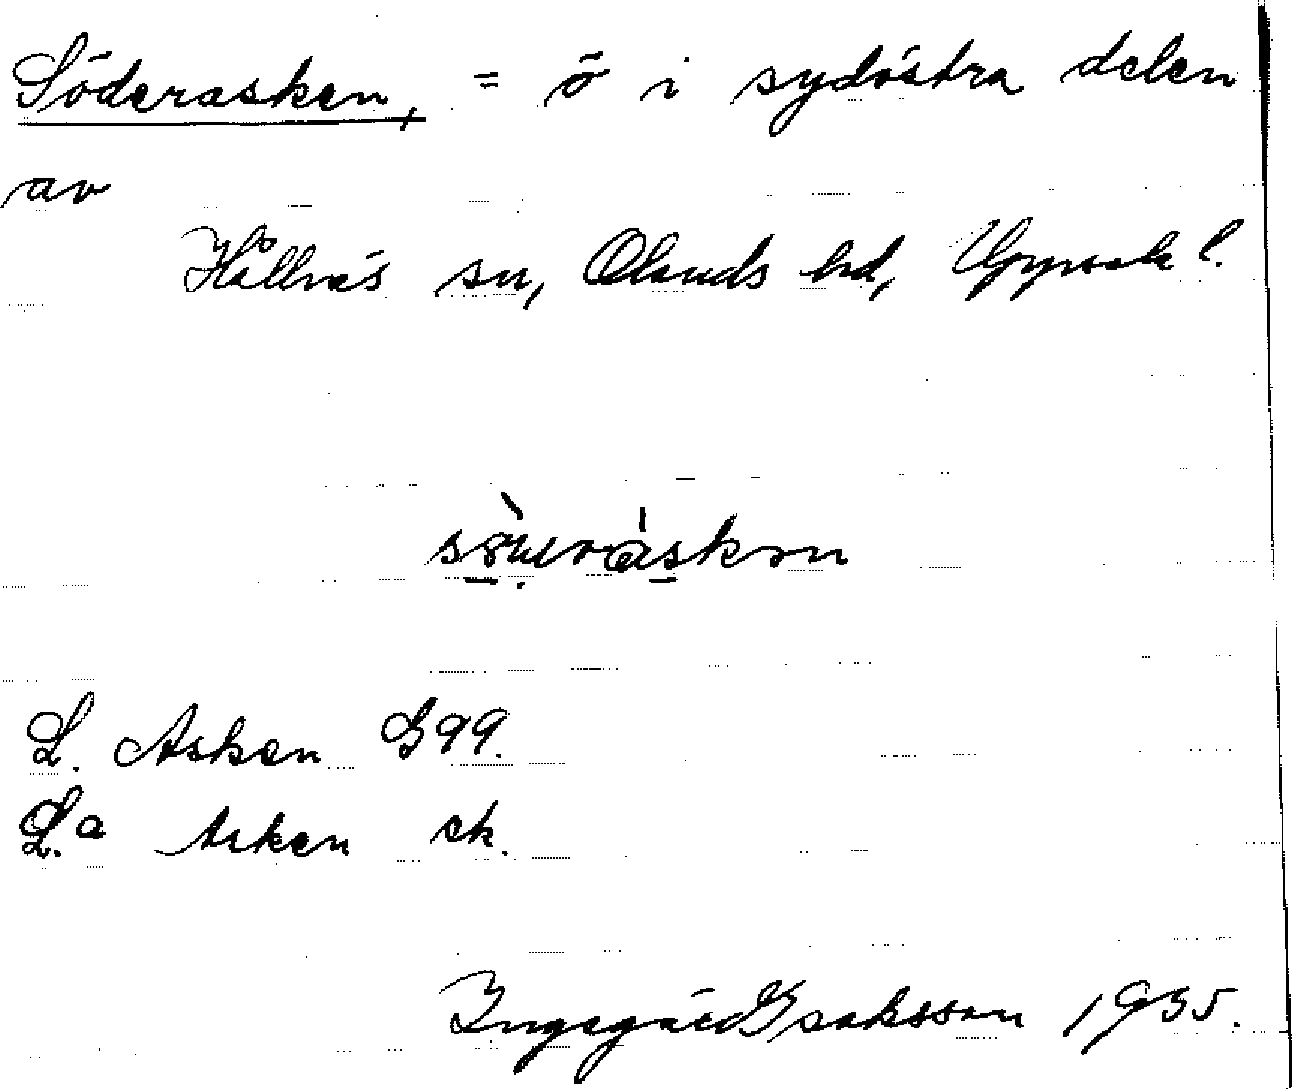 Söderasken, = ö i sydöstra delen
av
Hållnäs sn, Olands hd, Uppsala l.
L. Asken G99.
L:a Asken ek.
Ingegärd Isaksson 1935.